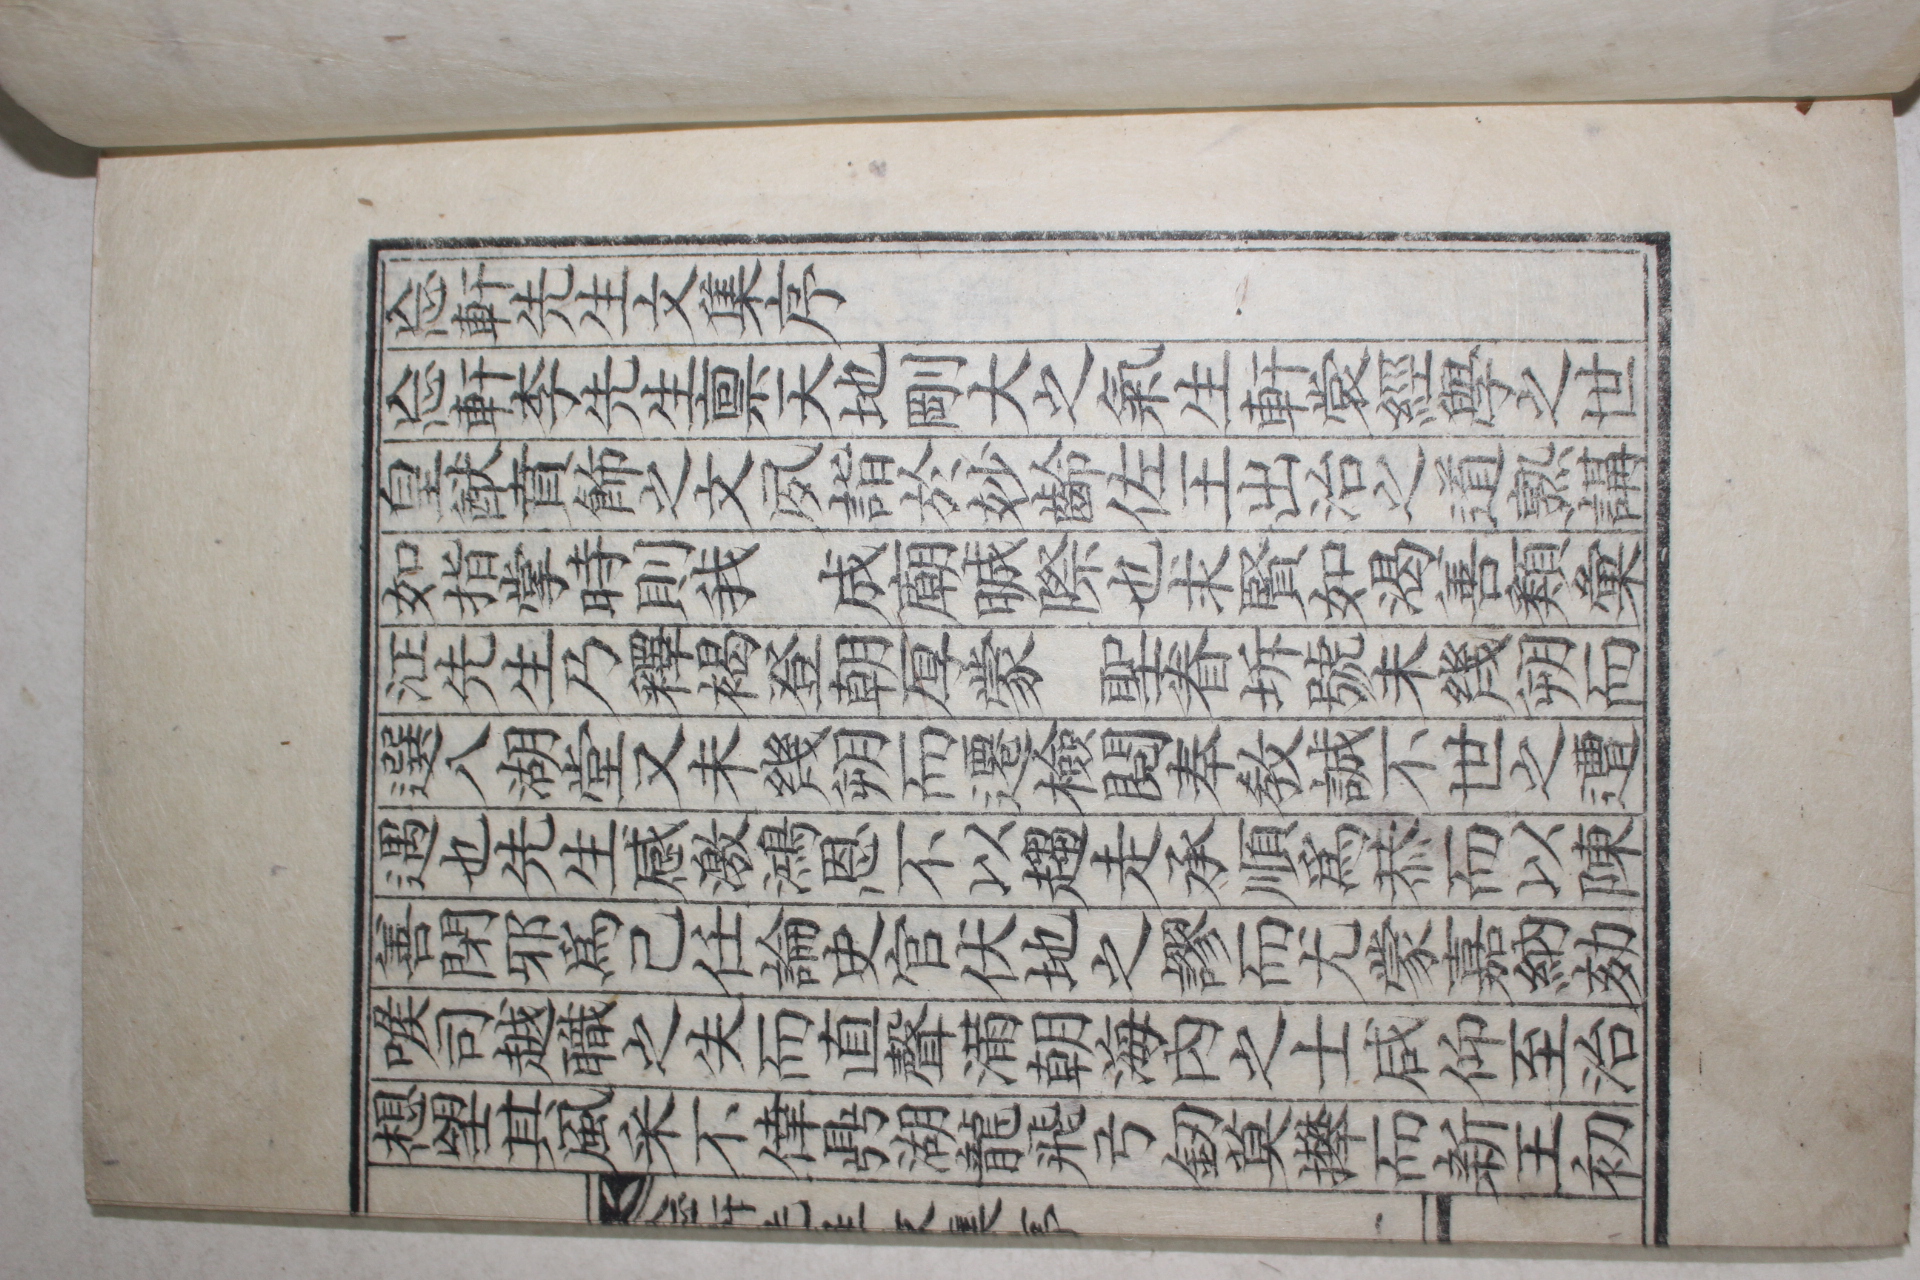 忘軒先生文集序
忘軒李先生稟天地剛大之氣生軒裳經學之世
皇猷賁飾之文夙詣於妙齡佐王出治之道熟講
如指掌時則我　成廟晠際也求賢如渴善類彙
征先生乃釋褐登朝厚蒙　聖眷拆號未幾朔而
選入湖堂又未幾朔而遷檢閱奉敎誠不世之遭
遇也先生感激鴻恩不以趨走承順爲恭而以陳
善閉邪爲己任論史官伏地之謬而尤蒙嘉納劾
喉司越職之失而直聲滿朝海內之士咸仰至治
想望其風采不偉歟湖龍飛弓釰莫攀而新王初
忘軒先生文集序